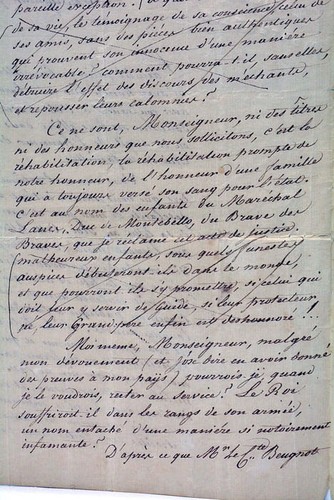 pareille exception! (a quoi
de sa vie, les témoignage de sa conscience, celui de
ses amis, sans des pièces bien authentiques
qui prouvent son innocence d'une manière
irrévocable; comment pourra-t-il, sans elles,
détruire l'effet des discours des méchants,
et repousser leurs calomnies?
Ce ne sont, Monseigneur, ni des titres
ni des honneurs que nous sollicitons, c'est la
réhabilitation, la réhabilitation prompte de
notre honneur, de l'honneur d'une famille
qui a toujours versé son sang pour l'état.
c'est au nom des enfants du Maréchal
Lanes, Duc de Montebello, du Brave des
Braves, que je réclame cet acte de justice.
malheureux enfants, sous quels funestes
auspices débuteront ils dans le monde,
et que pourront ils s'y promettre, si celui qui
doit leur y servir de Guide, si leur protecteur,
si leur Grand père enfin est deshonoré!
Moi meme, Monseigneur, malgré
mon dévouement (et j'ose dire en avoir donné
des preuves à mon pays) pourrois je, quand
je le voudrois, rester au service? Le Roi
souffriroit il dans les rangs de son armée,
un nom entaché d'une manière si notoirement
infamante?
D'après ce que Mr. le Cte. Beugnot